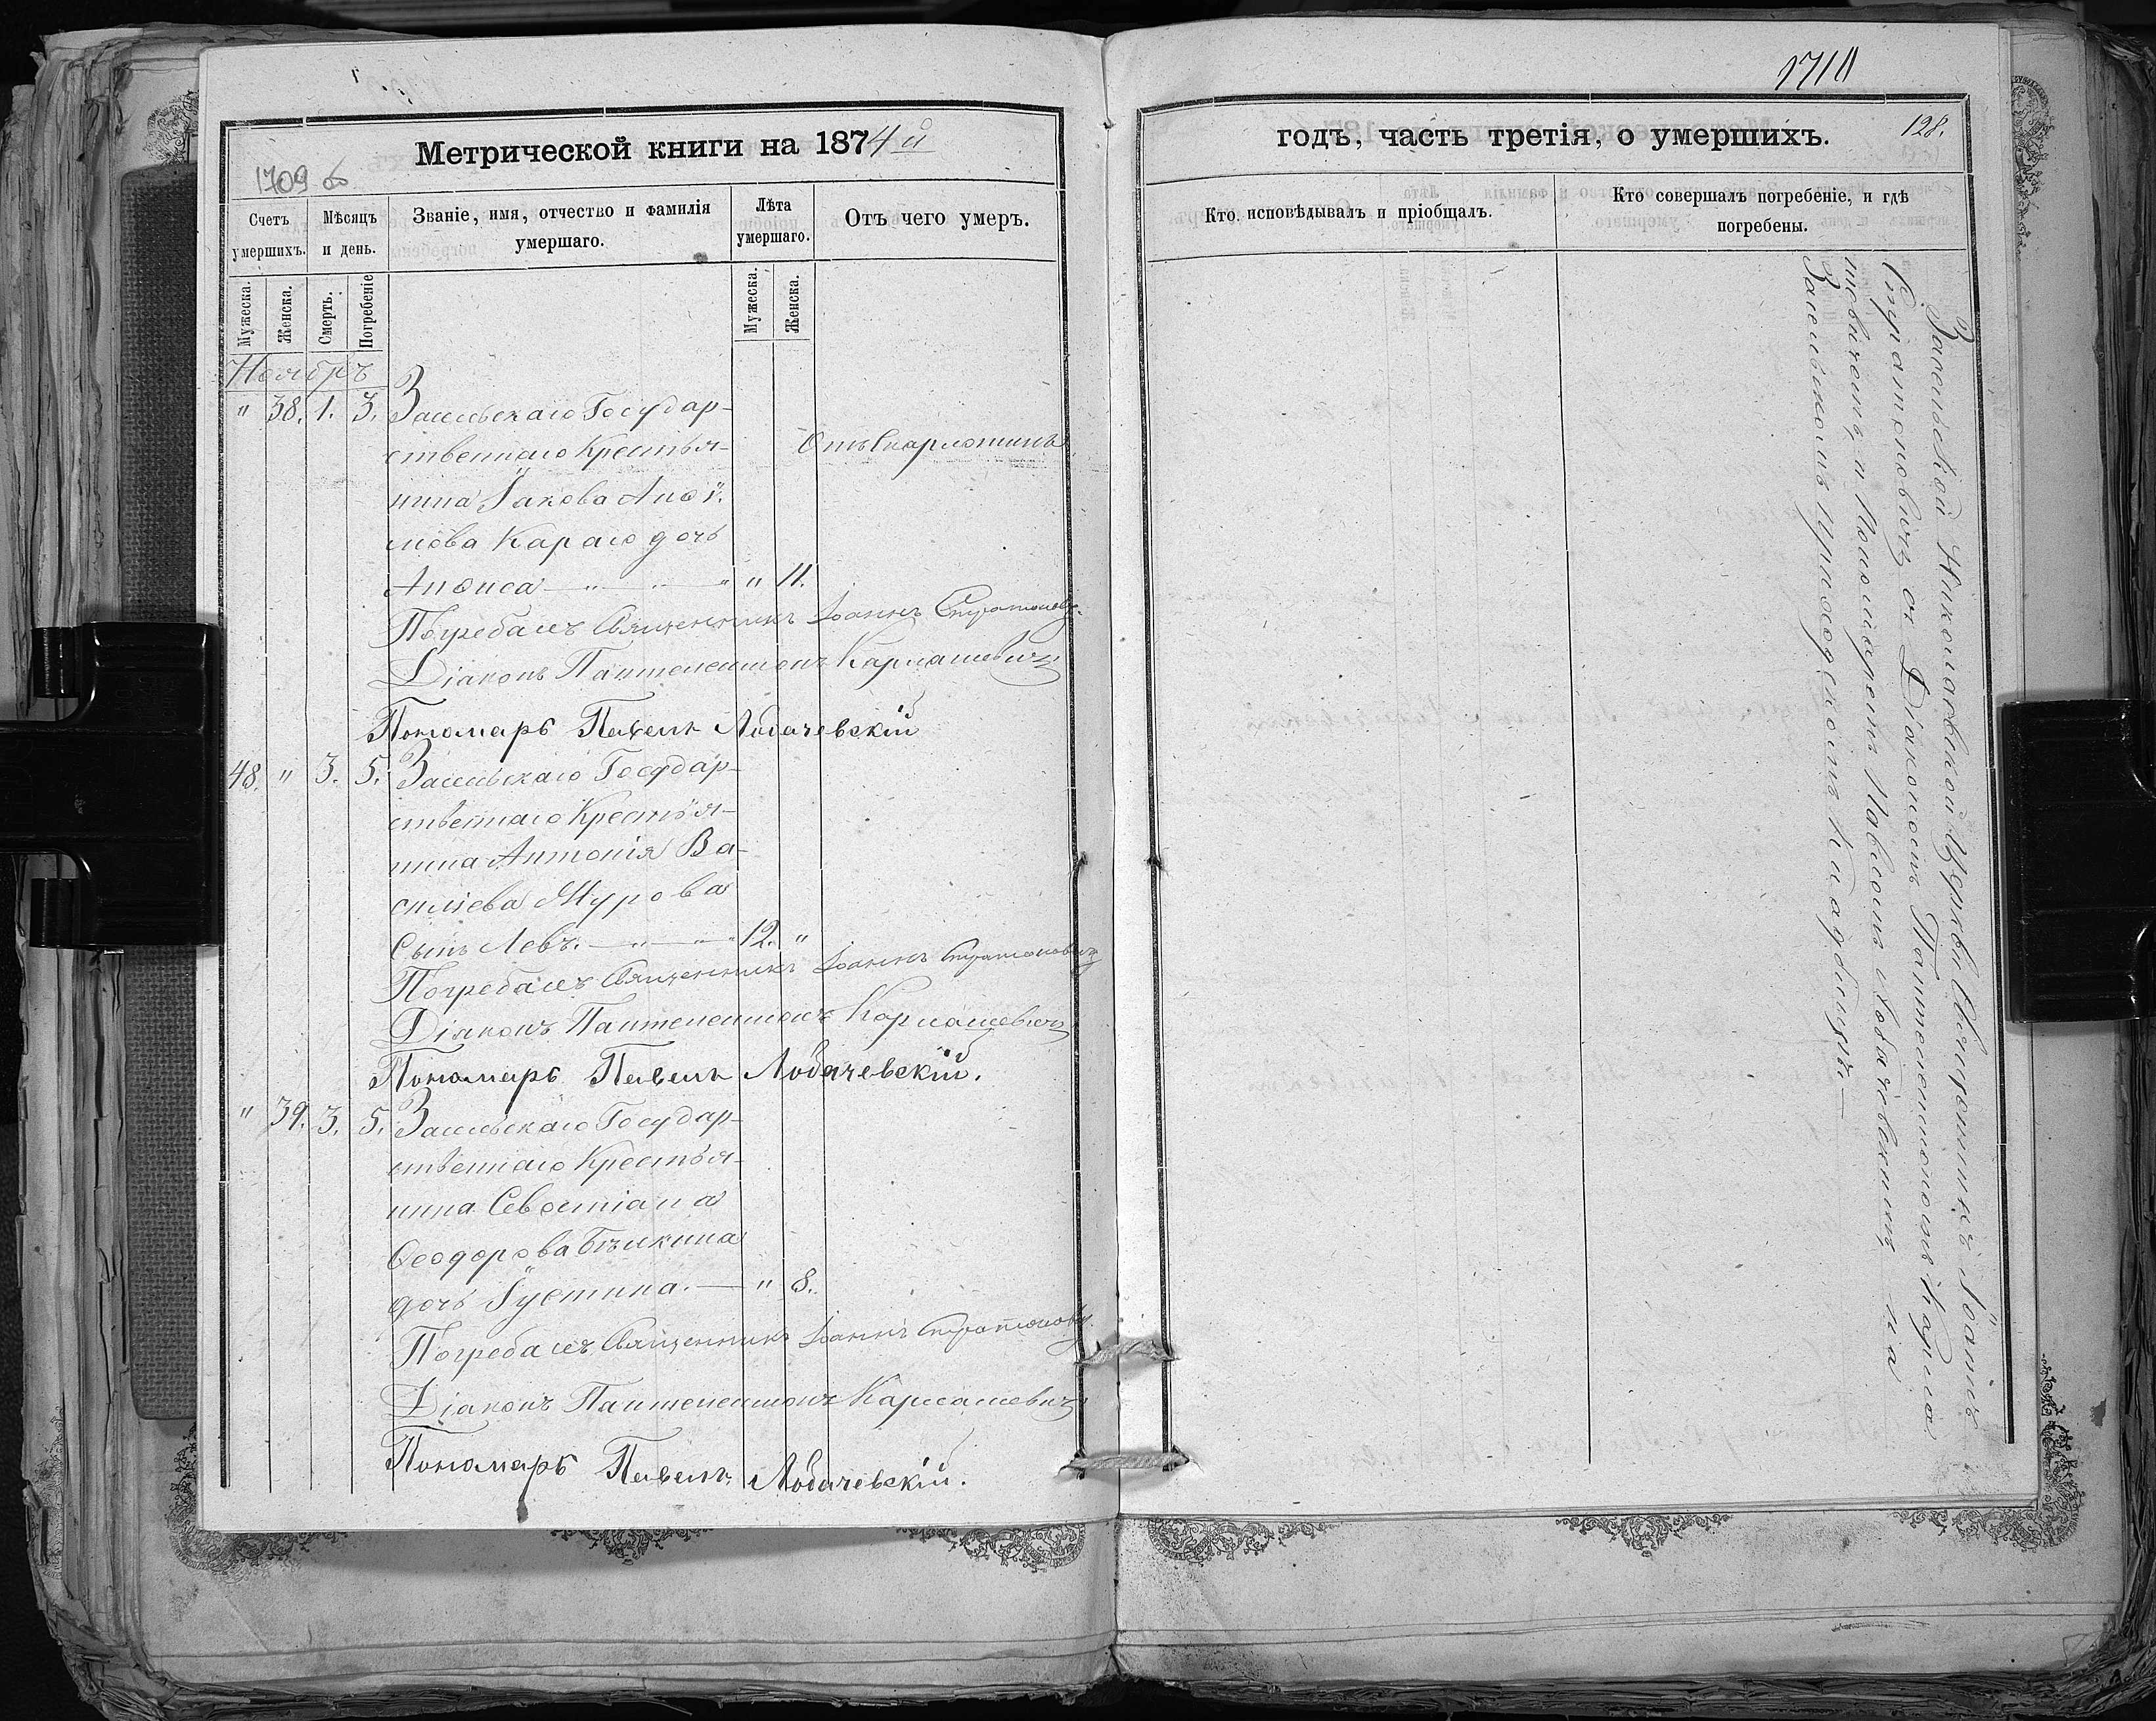 1710
Метрической книги на 1874й
1709 об
Счетъ умершихъ.
Мѣсяцъ и день.
Званіе, имя, отчество и фамилія умершаго.
Лѣта умершаго.
Отъ чего умеръ.
Мужеска.
Женска.
Смерть.
Погребеніе
Мужеска.
Женска.
Ноябрь
" 38. 1. 3. Засельскаго Государ-
ственнаго Крестья-
нина Іакова
Караго дочь
Анѳиса " " 11.
Отъ Скарлотины
Погребалъ Священникъ Іоаннъ Стратонович
Діаконъ Пантелеимонъ Карпашевичъ
Пономарь Павелъ Лобачевскій
48. " 3. 5. Засельскаго Государ-
ственнаго Крестья-
нина Антонія Ва-
силіева Мурова
Сынъ Левъ. 12. "
Погребалъ Священникъ Іоаннъ Стратоновичъ
Діаконъ Пантелеимонъ Карпашевичъ
Пономарь Павелъ Лобачевскій.
" 39. 3. 5. Засельскаго Государ-
ственнаго Крестья-
нина Севастіана
Ѳеодорова Бѣликина
дочь Іустина. " 8.
Погребалъ Священникъ Іоаннъ Стратонович
Діаконъ Пантелеимонъ Карпашевичъ
Пономарь Павелъ Лобачевскій.
годъ, часть третія, о умершихъ.
128.
Кто исповѣдывалъ и пріобщалъ.
Кто совершалъ погребеніе, и гдѣ погребены.
Засельской Николаевской Церкви Священникъ Іоаннъ
Стратоновичъ съ Діакономъ Пантелеимономъ Карпа
шевичемъ и Пономаремъ Павломъ Лобачевскимъ на
Засельскомъ приходскомъ кладбищѣ.